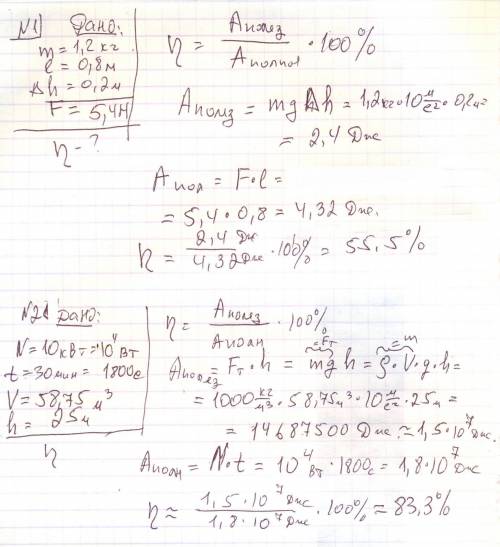 №1 Дано:
m = 1,2 кг
l = 0,8 м
Δh = 0,2 м
F = 5,4 Н
η - ?
η = Aполез / Aполное · 100%
Aполез = mgΔh = 1,2 кг · 10 м/с² · 0,2 м =
= 2,4 Дж
Aпол = F · l =
= 5,4 · 0,8 = 4,32 Дж.
η = 2,4 Дж / 4,32 Дж · 100% = 55,5%
№2 Дано:
N = 10 кВт = 10⁴ Вт
t = 30 мин = 1800 с
V = 58,75 м³
h = 25 м
η
η = Aполез / Aполн · 100%
= Fт = m
Aполез = Fт · h = mgh = ρ · V · g · h =
= 1000 кг/м³ · 58,75 м³ · 10 м/с² · 25 м =
= 14687500 Дж ≈ 1,5 · 10⁷ Дж.
Aполн = N · t = 10⁴ Вт · 1800 с = 1,8 · 10⁷ Дж
η ≈ 1,5 · 10⁷ Дж / 1,8 · 10⁷ Дж · 100% ≈ 83,3%